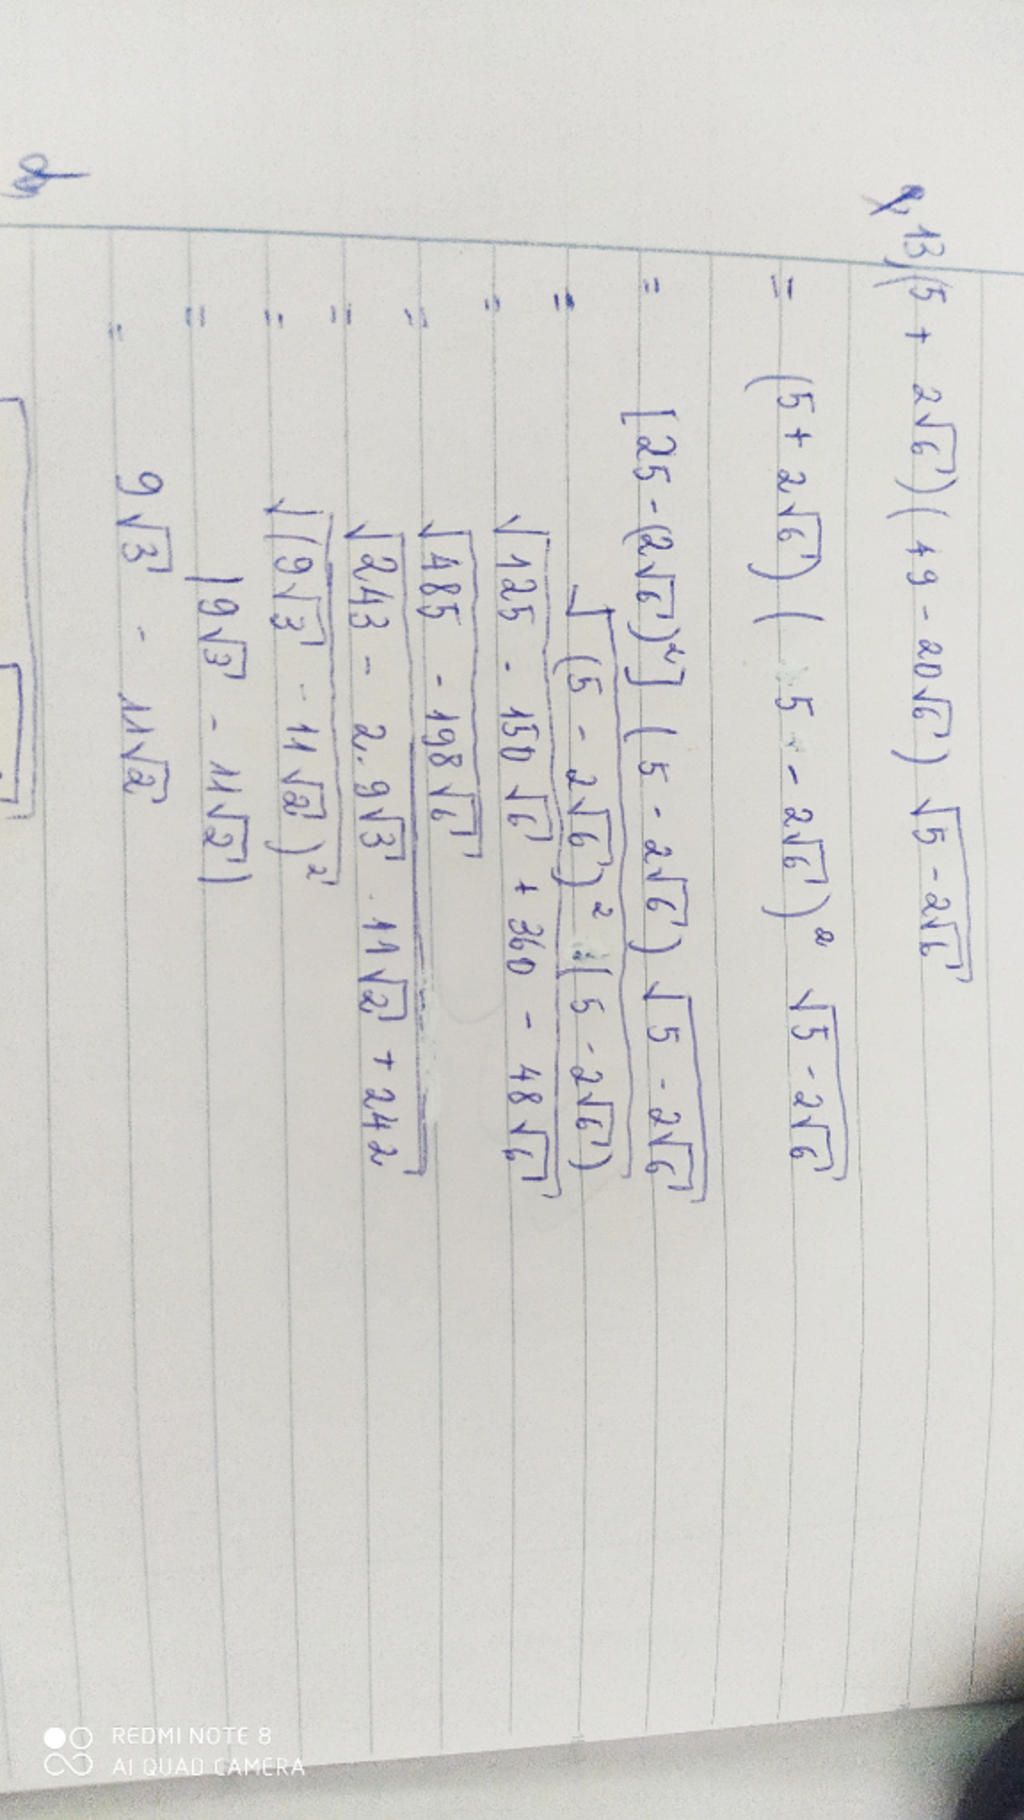 13) (5 + 2√6)(49 - 20√6) √(5 - 2√6)
= (5 + 2√6) (5 - 2√6)² √(5 - 2√6)
= [25 - (2√6)²] (5 - 2√6) √(5 - 2√6)
= √((5 - 2√6)² (5 - 2√6))
= √(125 - 150√6 + 360 - 48√6)
= √(485 - 198√6)
= √(243 - 2.9√3 . 11√2 + 242)
= √((9√3 - 11√2)²)
= |9√3 - 11√2|
= 9√3 - 11√2
REDMI NOTE 8
AI QUAD CAMERA